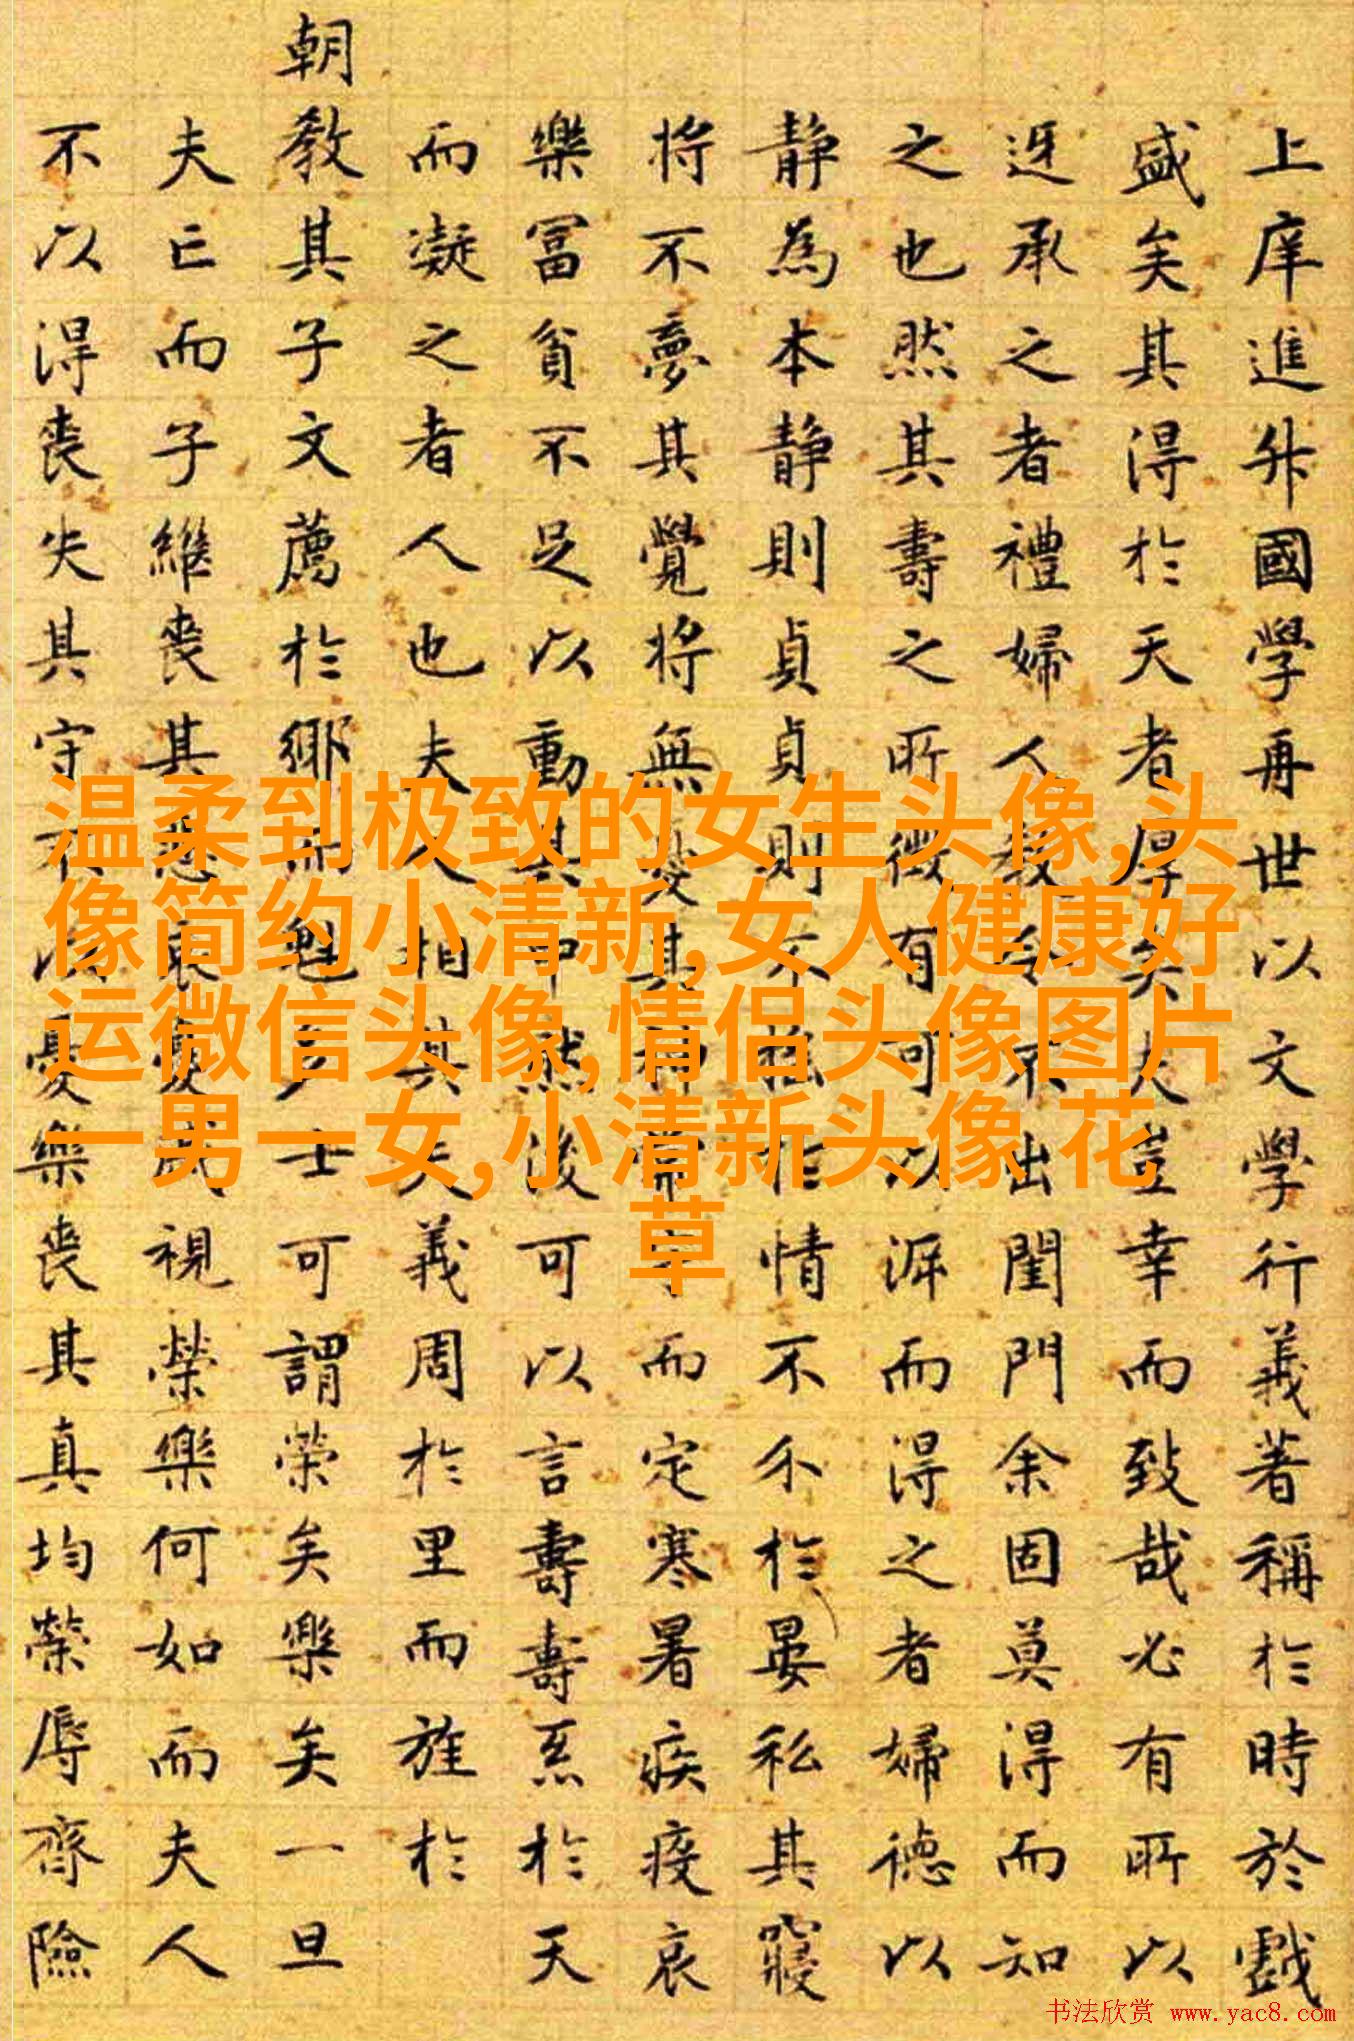 上庠進升國學再世以文學行義著稱於時於戲
盛矣其得於天者厚矣夫豈幸而致哉必有所以
迓承之者禮婦人教令不出閨門余固莫得而知
之也然其壽之所徴有可以泝而得之者婦德以
静為本静則貞貞則不撓於情不介於晏私其寝
将不夢其覺将無憂其神常而定寒暑疾疫哀
樂冨貧不足以動其中然後可以言壽壽系於天
而凝之者人也夫人相其夫義周於里而旌於
朝教其子文薦於鄉而魁多士可謂荣矣樂矣一旦
夫亡而子継丧其悲哀憂戚視榮樂何如而夫人
不以得丧失其守不以憂樂丧其真均榮辱齊險
温柔到极致的女生头像,头
像简约小清新,女人健康好
运微信头像,情侣头像图片
一男一女,小清新头像 花
草
书法欣赏 www.yac8.com